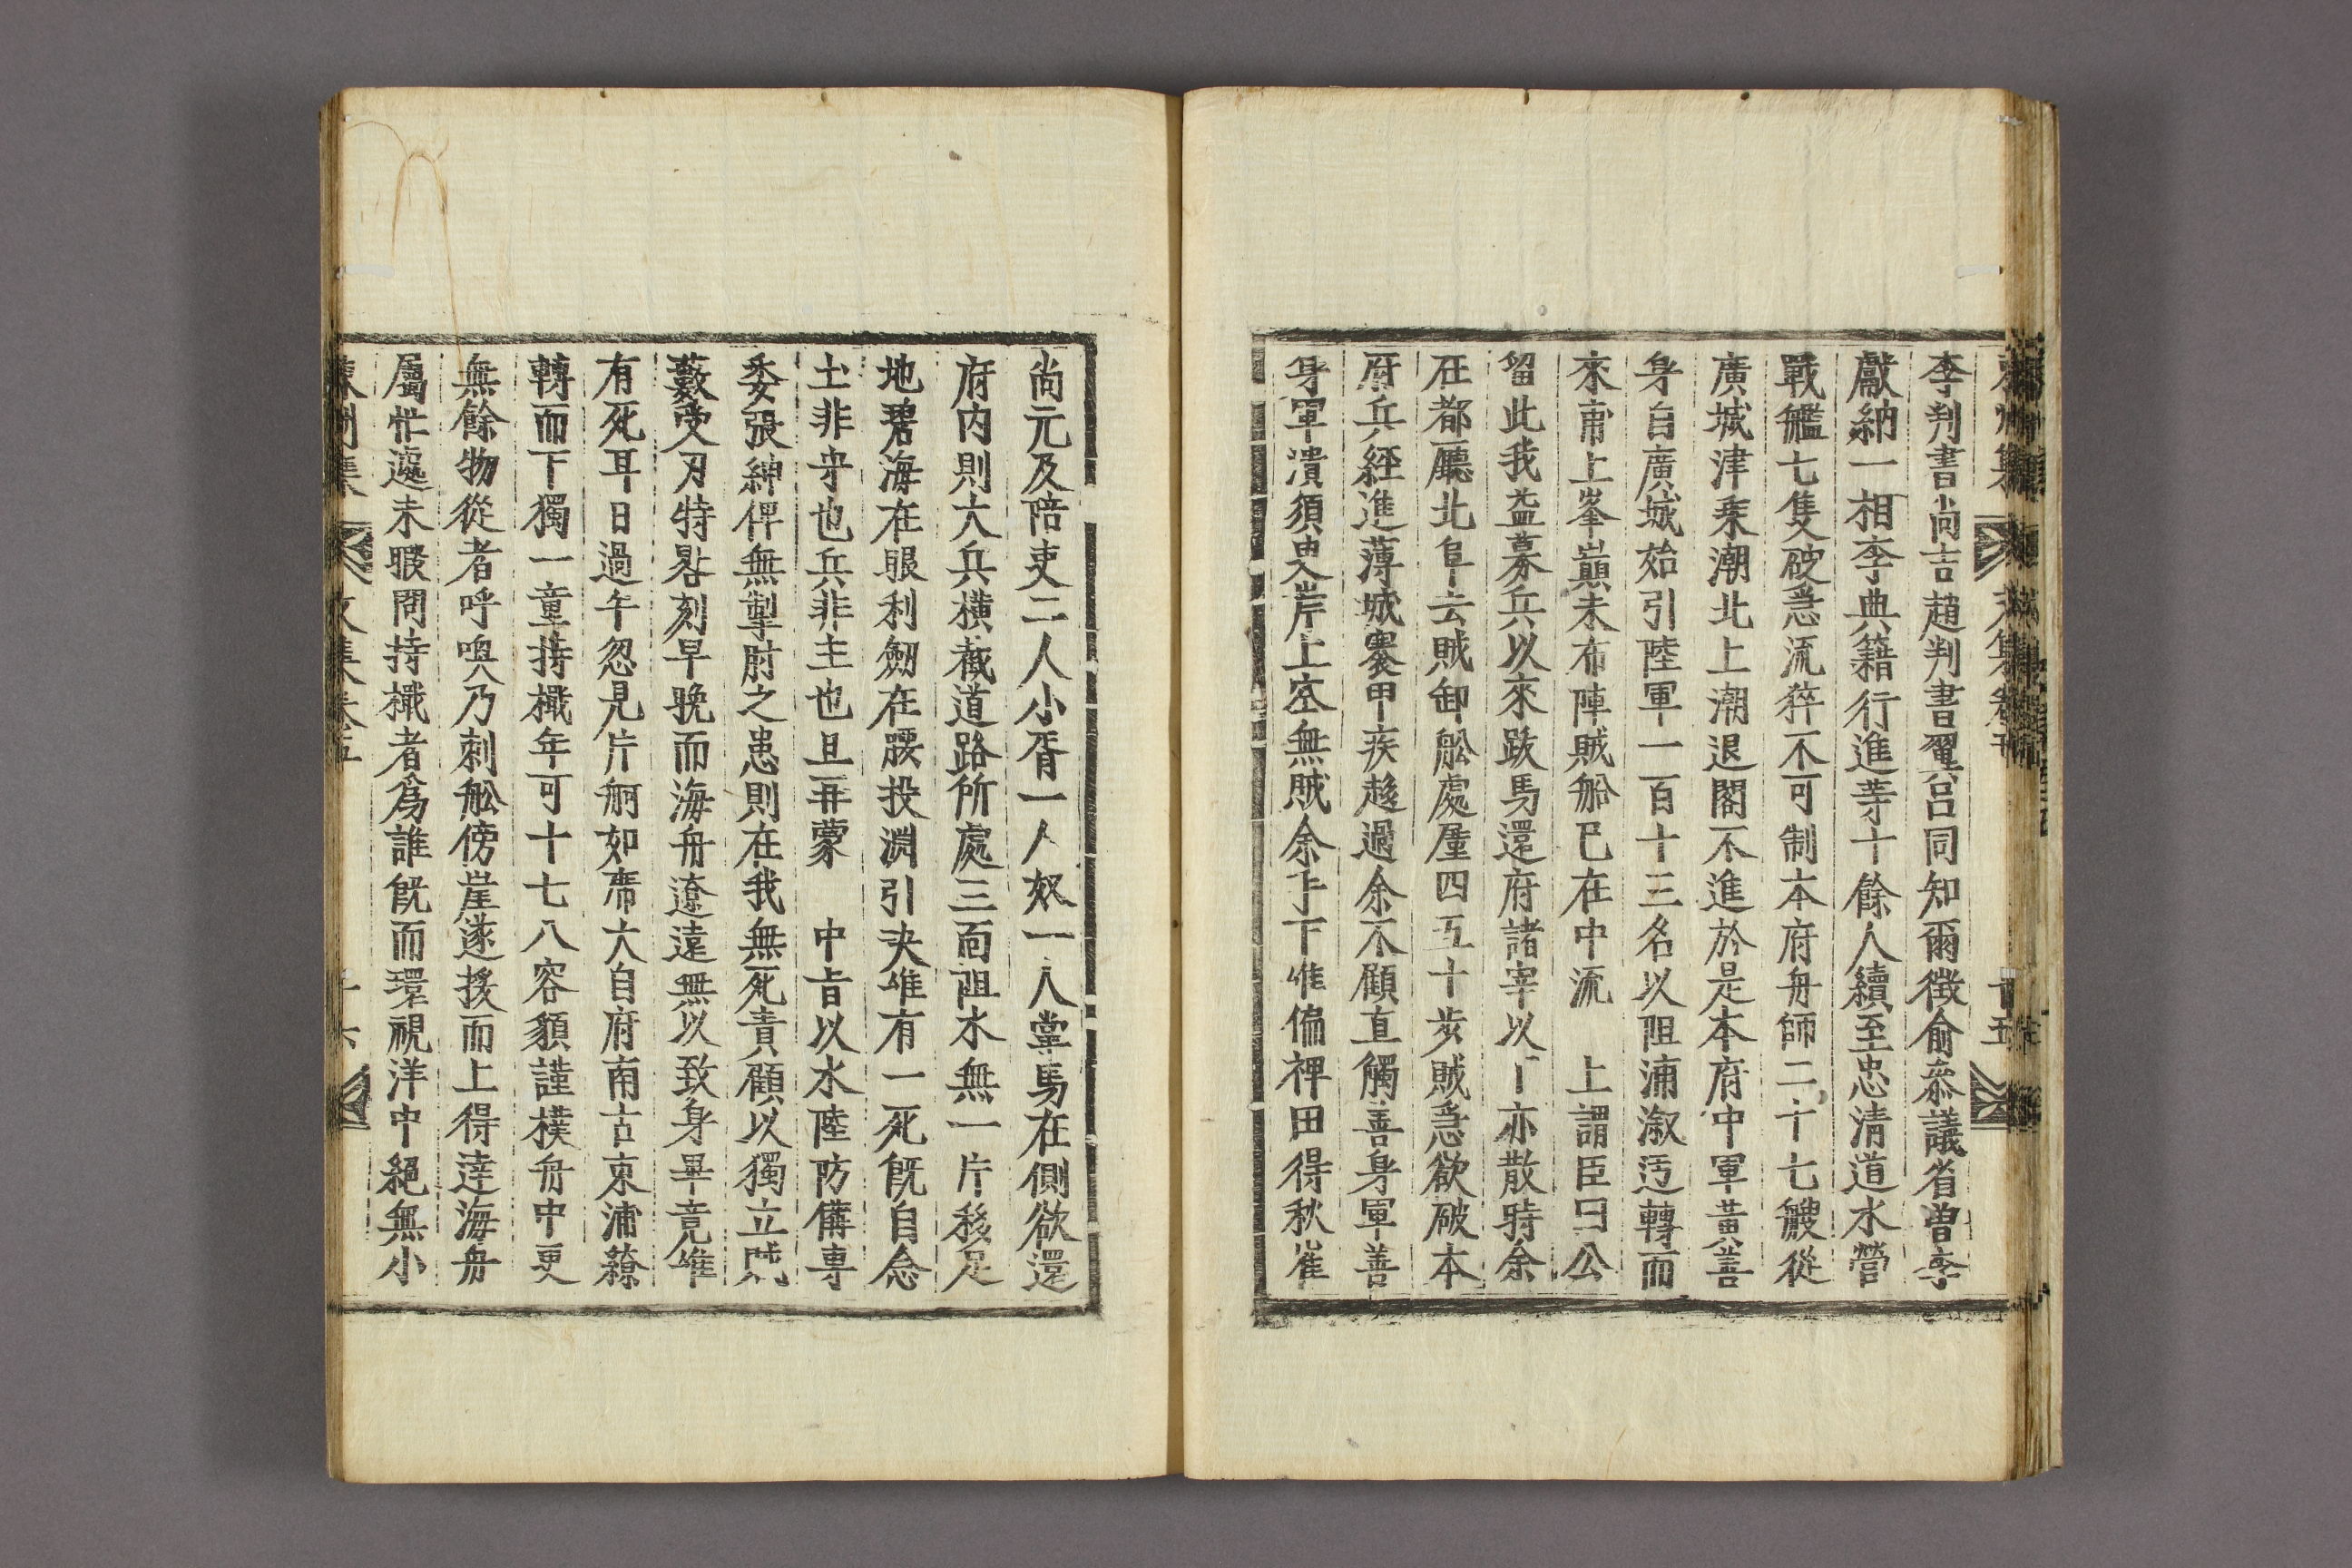 李判書尙吉趙判書翼呂同知爾徵俞叅議省曾李
獻納一相李典籍行進等十餘人續至忠淸道水營
戰艦七隻破急流猝不可制本府舟師二十七艘從
廣城津乗潮北上潮退閣不進於是本府中軍黃善
身自廣城始引陸軍一百十三名以阻浦溆迃轉而
來甫上峯巓未布陣賊船已在中流 上謂臣曰公
留此我益募兵以來跋馬還府諸宰以丨亦散時余
在都廳北阜去賊卸舩處廑四五十步賊急欲破本
府兵經進薄城褁甲疾趍過余不顧直觸善身軍善
身軍潰須臾岸上空無賊余手下唯偏裨田得秋崔
尙元及陪吏二人小胥一人奴一人掌馬在側欲還
府内則大兵橫截道路所處三面阻水無一片移足
地碧海在眼利劒在腰投淵引決唯有一死旣自念
土非守也兵非主也且再蒙 中旨以水陸防備專
委張紳俾無掣肘之患則在我無死責顧以獨立
藪受刃特畧刻早晚而海舟遼遠無以致身畢竟唯
有死耳日過午忽見片舸如席大自府南古束浦蔡
轉而下獨一童持檝年可十七八容貌謹樸舟中更
無餘物從者呼喚乃刺舩傍崖遂援而上得達海舟
屬忙遽未暇問持檝者爲誰旣而環視洋中絕無小
文集卷五